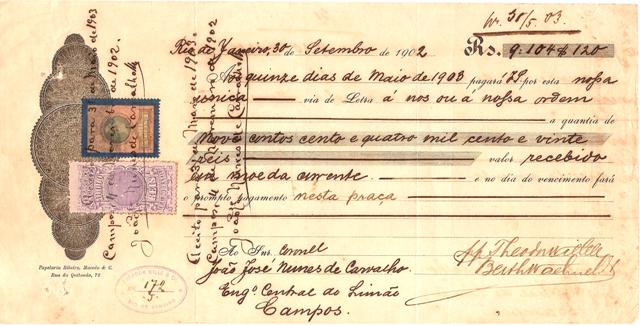 W. 30/5 03.
Rio de Janeiro, 30 de Setembro de 1902 Rs. 9:104$120
A quinze dias de Maio de 1903 pagará VS. por esta nossa
unica via de Letra á nós ou a nossa ordem
a quantia de
Nove contos cento e quatro mil cento e vinte
réis valor recebido
em moeda corrente e no dia do vencimento fará
o prompto pagamento nesta praça
Ao Snr. Coronel
João José Nunes de Carvalho.
Engº Central do Limão
Campos.
Papelaria Ribeiro, Macedo & C.
Rua da Quitanda, 79
172
5.
Campos
de 1902.
João
de Carvalho
Acceito para
Maio de 1903.
Campos
de 1902
João Nunes de Carvalho
pp. Theodor Wille